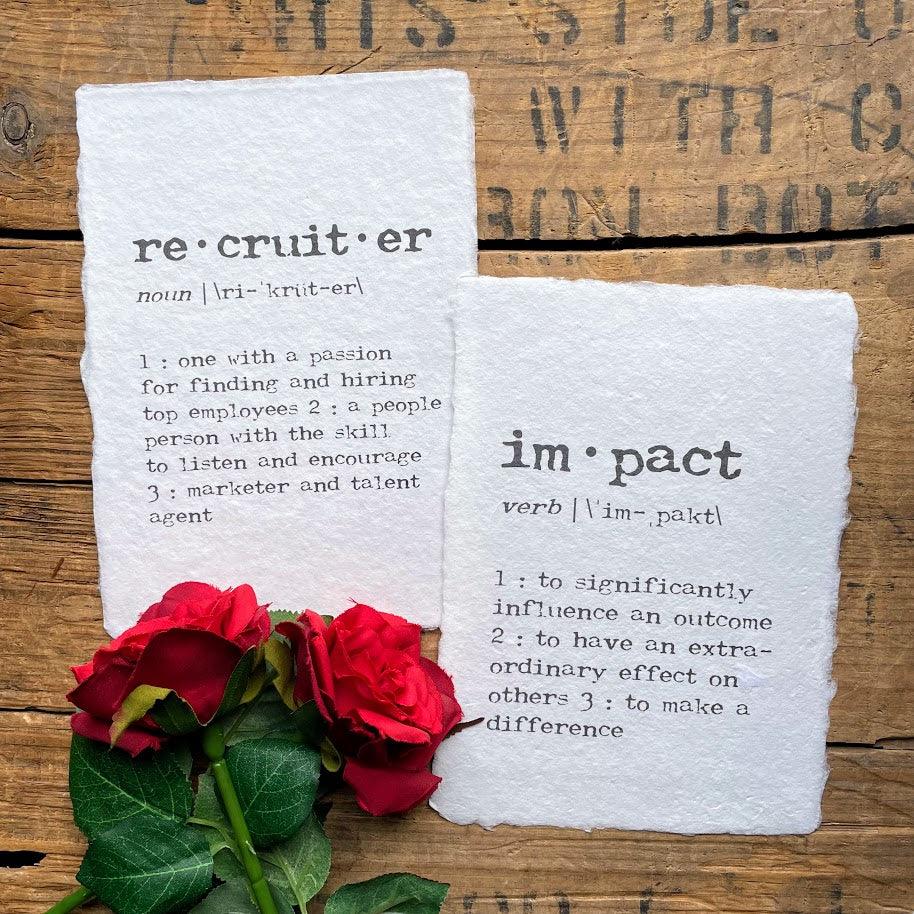 WITH C
re·cruit·er
noun | \ri-ˈkrüt-er\
1 : one with a passion
for finding and hiring
top employees 2 : a people
person with the skill
to listen and encourage
3 : marketer and talent
agent
im·pact
verb | \ˈim-ˌpakt\
1 : to significantly
influence an outcome
2 : to have an extra-
ordinary effect on
others 3 : to make a
difference